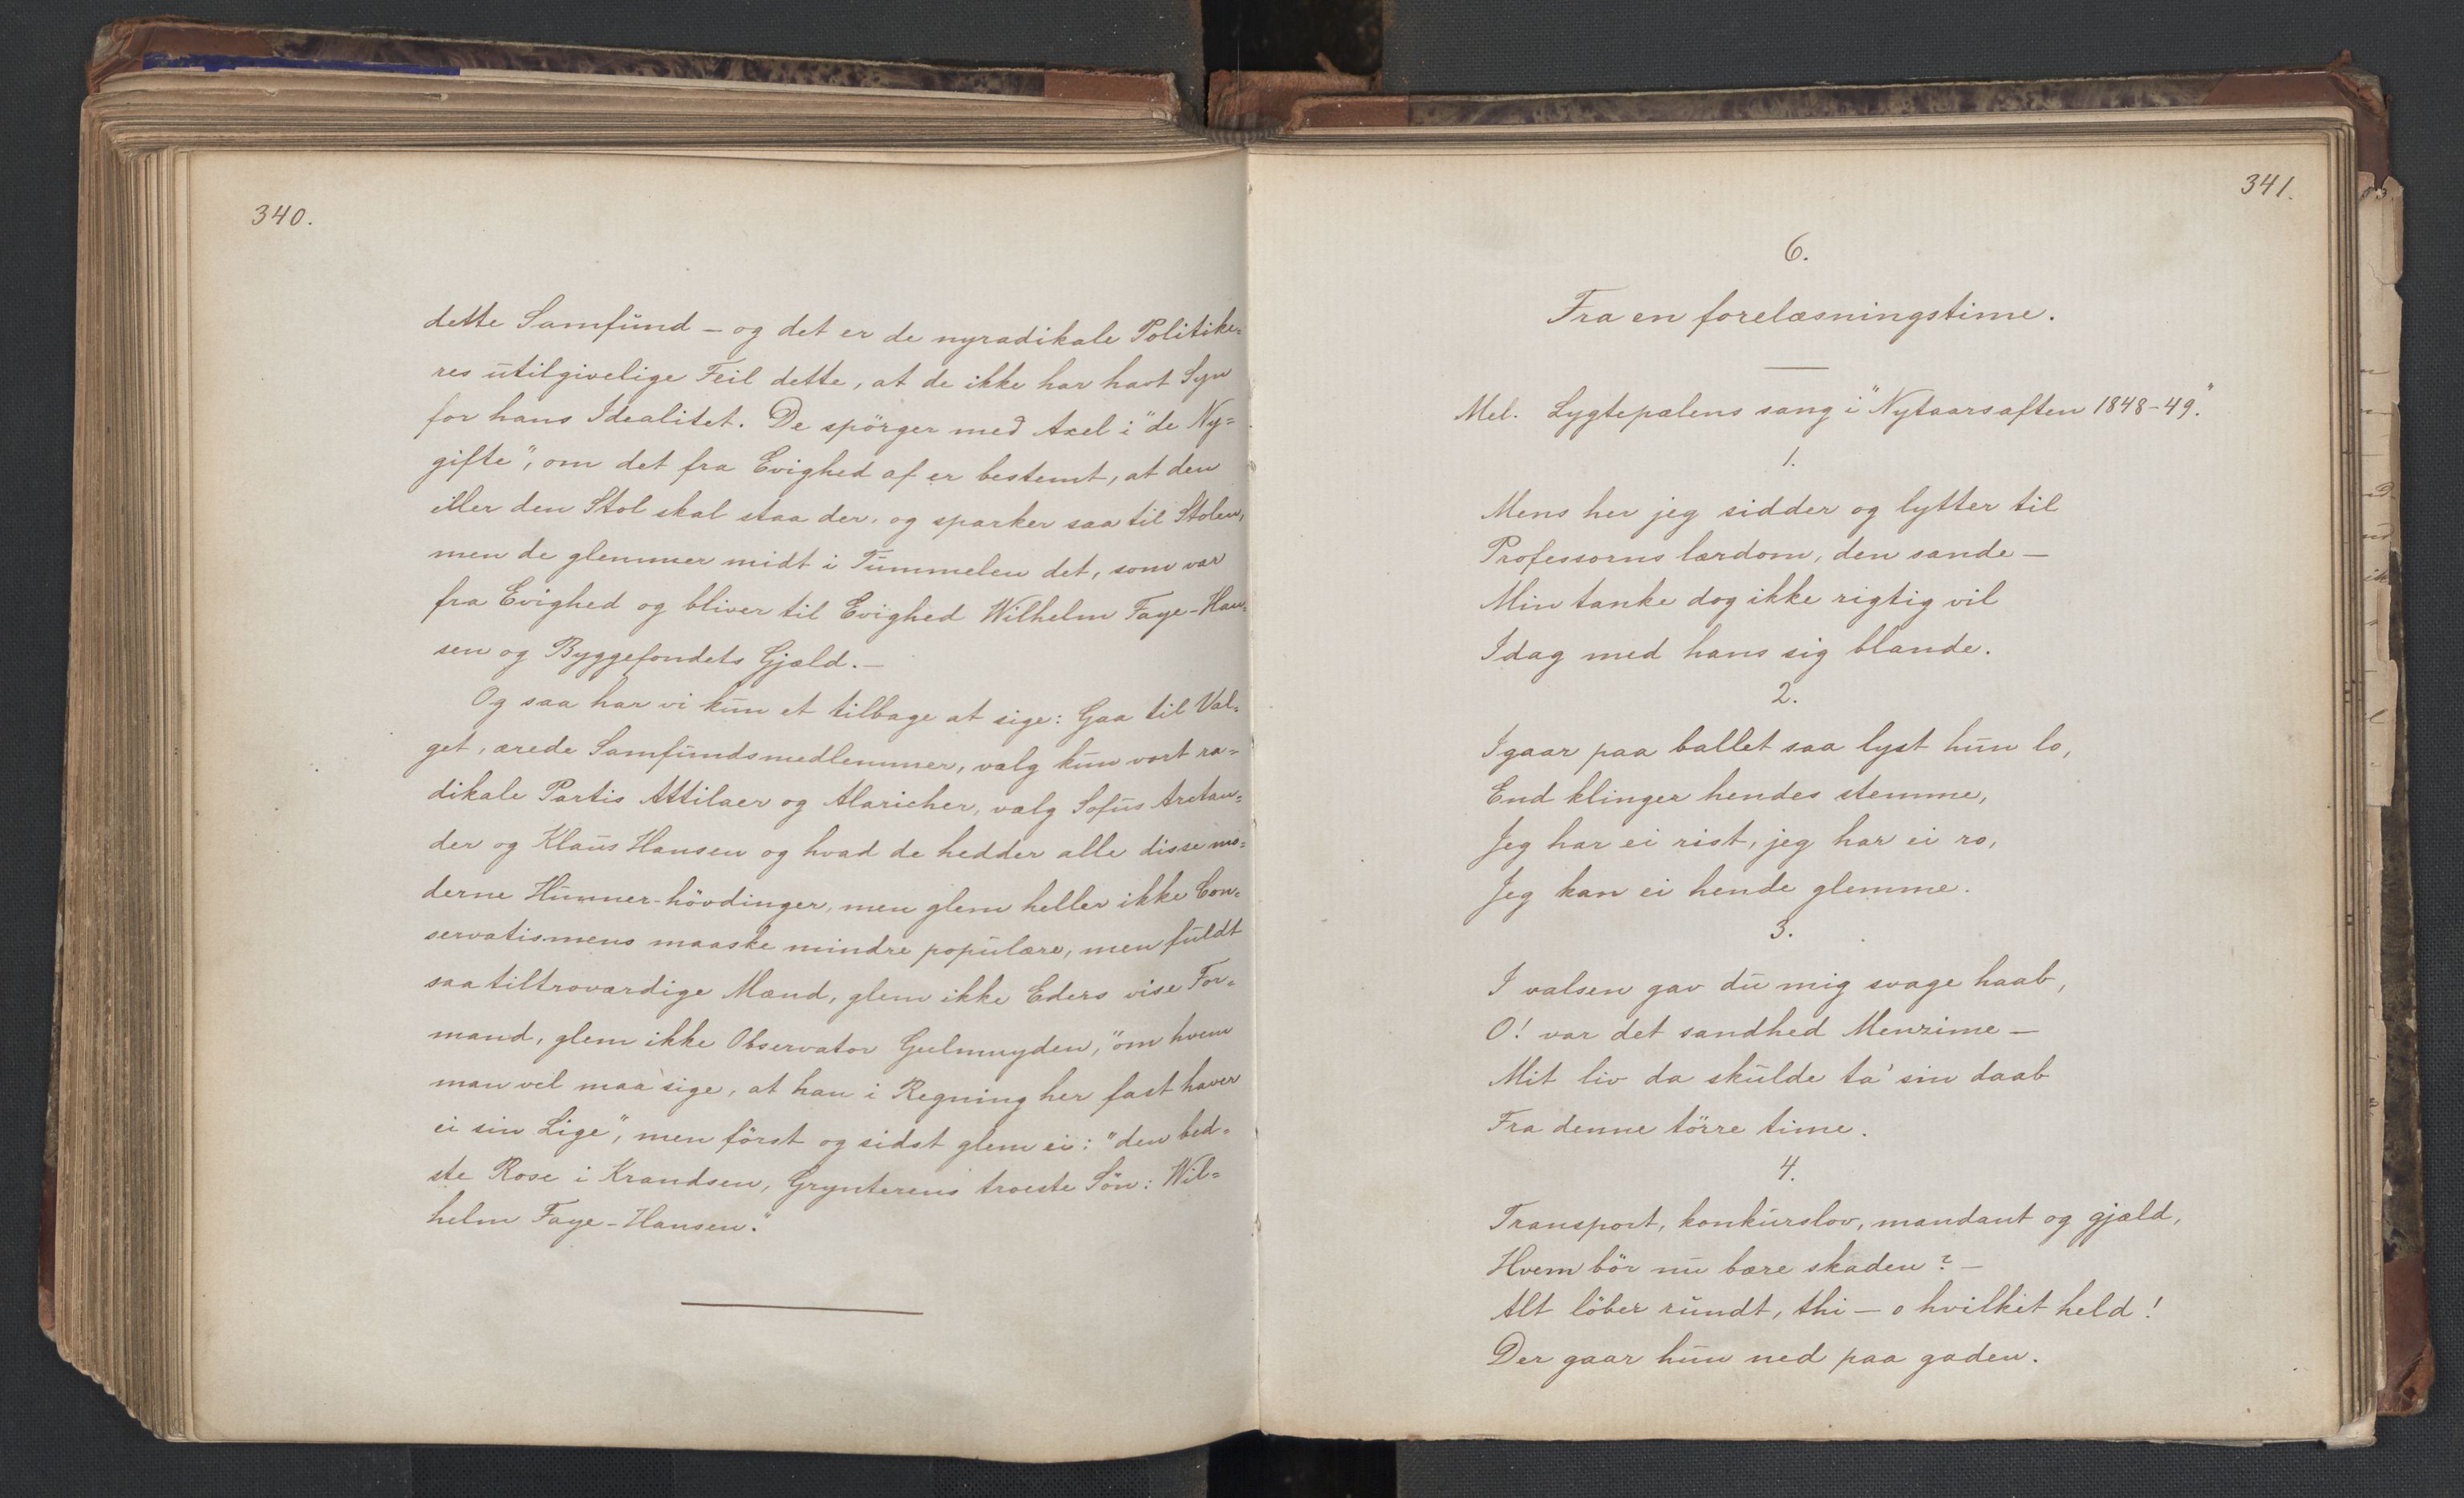 340.
dette Samfund – og det er de nyradikale Politike=
res utilgivelige Feil dette, at de ikke har havt Syn
for hans Idealitet. De spörger med Axel i "de Ny=
gifte", om det fra Evighed af er bestemt, at den
eller den Stol skal staa der, og sparker saa til Stolen,
men de glemmer midt i Tummelen det, som var
fra Evighed og bliver til Evighed Wilhelm Faye-Han=
sen og Byggefondets Gjæld. –
Og saa har vi kun et tilbage at sige: Gaa til Val=
get, ærede Samfundsmedlemmer, vælg kun vort ra=
dikale Partis Attilaer og Alaricher, vælg Sofus Arctan=
der og Klaus Hansen og hvad de hedder alle disse mo=
derne Hunner-hövdinger, men glem heller ikke Con=
servatismens maaske mindre populære, men fuldt
saa tiltroværdige Mænd, glem ikke Eders vise For=
mand, glem ikke Observator Geelmuyden, "om hvem
man vel maa sige, at han i Regning her fast haver
ei sin Lige", men först og sidst glem ei: "den bed=
ste Rose i Krandsen, Grynterens troeste Sön: Wil=
helm Faye-Hansen."
341.
6.
Fra en forelæsningstime.
Mel. Lygtepælens sang i "Nytaarsaften 1848-49."
1.
Mens her jeg sidder og lytter til
Professorns lærdom, den sande –
Min tanke dog ikke rigtig vil
Idag med hans sig blande.
2.
Igaar paa ballet saa lyst hun lo,
End klinger hendes stemme,
Jeg har ei rist, jeg har ei ro,
Jeg kan ei hende glemme.
3.
I valsen gav du mig svage haab,
O! var det sandhed Menzime –
Mit liv da skulde ta' sin daab
Fra denne törre time.
4.
Transport, konkurslov, mandant og gjæld,
Hvem bör nu bære skaden? –
Alt löber rundt, thi – o hvilket held!
Der gaar hun ned paa gaden.